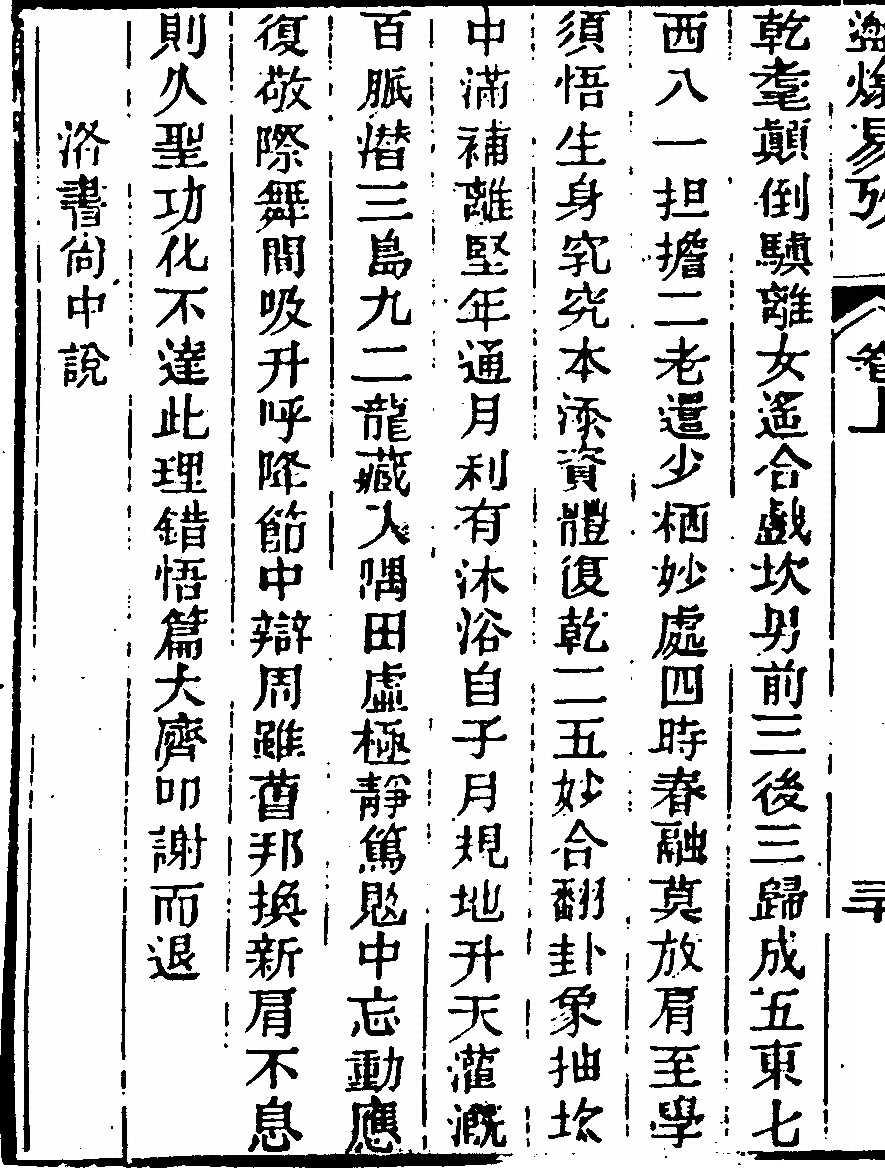 卷上
乾耄顛倒驥離女遙合戲坎男前三後三歸成五東七
西八一担擔二老還少栖妙處四時春融莫放肩至學
須悟生身究究本添資體復乾二五妙合翻卦象抽坎
中滿補離堅年通月利有沐浴自子月規地升天灌溉
百脈潛三島九二龍藏人隅田虛極靜篤愍中忘動應
復敬際舞間吸升呼降節中辯周雖舊邦換新肩不息
則久聖功化不達此理錯悟篇大齊叩謝而退
洛書尚中說